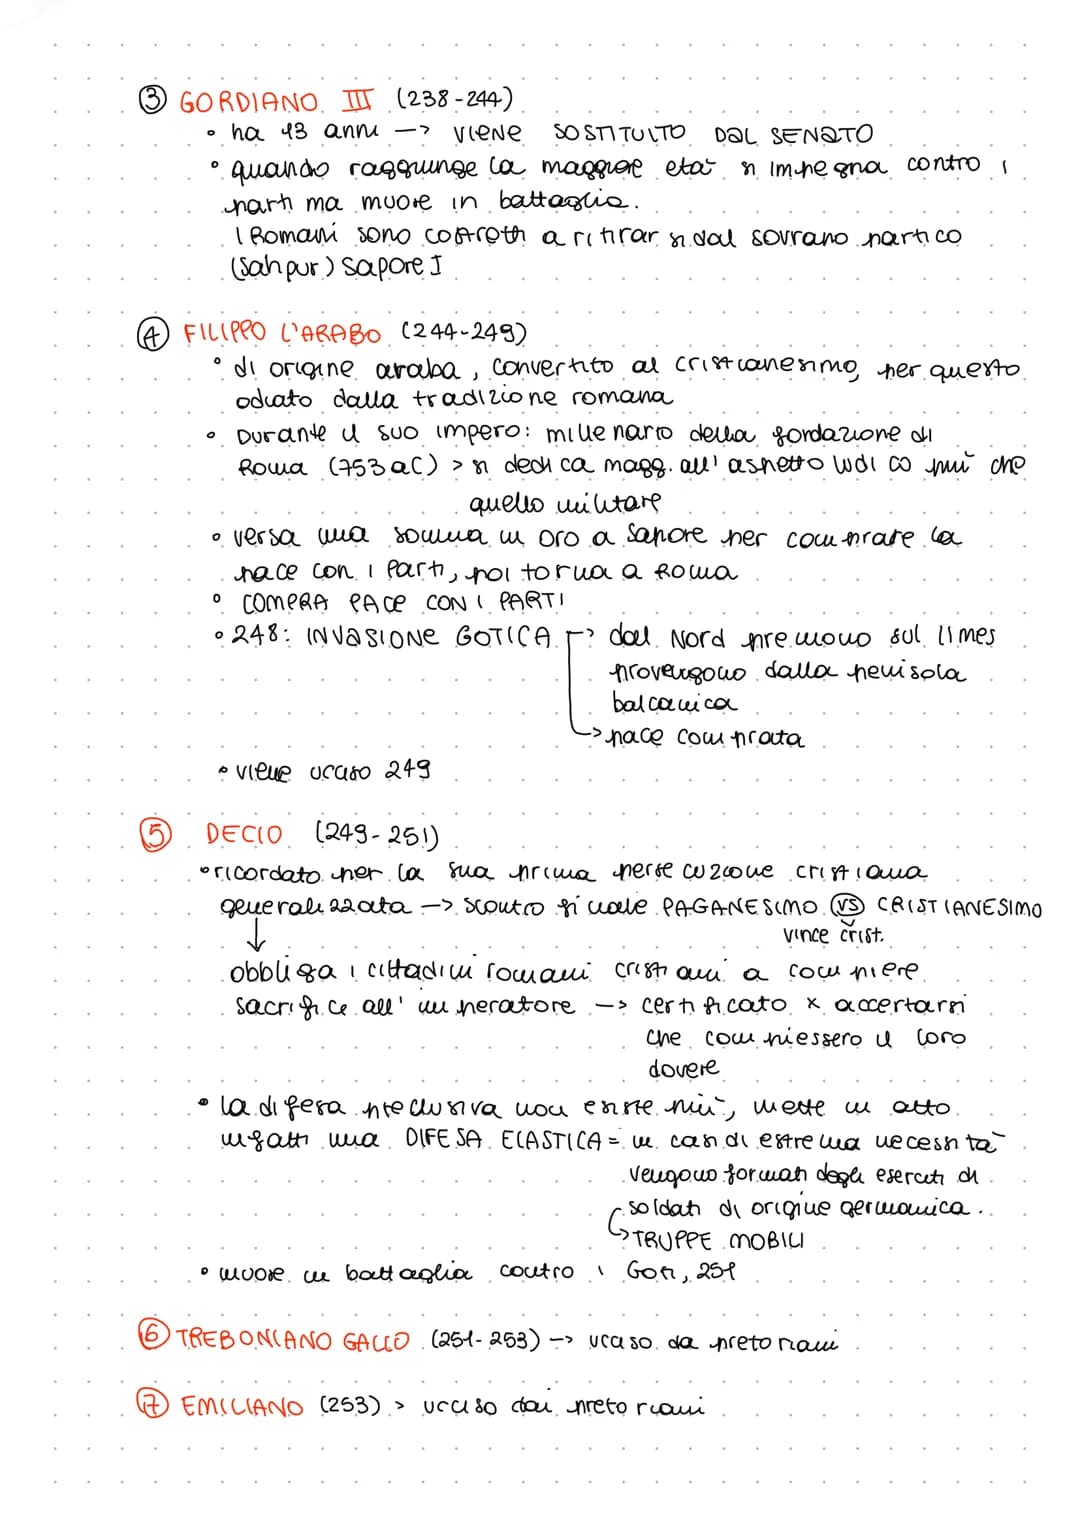 ③ GORDIANO III (238-244)
• ha 13 anni -> VIENE SOSTITUITO DAL SENATO
• quando raggiunge la maggiore età si impegna contro i
parti ma muore in battaglia.
I Romani sono costretti a ritirarsi dal sovrano partico
(Sahpur) Sapore I
④ FILIPPO L'ARABO (244-249)
• di origine araba, convertito al cristianesimo, per questo
odiato dalla tradizione romana
• Durante il suo impero: millenario della fondazione di
Roma (753 aC) > si dedica magg. all'aspetto ludico più che
quello militare
• versa una somma in oro a Sapore per comprare la
pace con i Parti, poi torna a Roma
• COMPRA PACE CON I PARTI
• 248: INVASIONE GOTICA -> dal Nord premono sul limes
provengono dalla penisola
balcanica
-> pace comprata
• viene ucciso 249
⑤ DECIO (249-251)
• ricordato per la sua prima persecuzione cristiana
generalizzata -> scontro finale PAGANESIMO VS CRISTIANESIMO
vince crist.
↓
obbliga i cittadini romani cristiani a compiere
sacrifice all'imperatore -> certificato x accertarsi
che compiessero il loro
dovere
• la difesa preclusiva non esiste più, mette in atto
infatti una DIFESA ELASTICA = in casi di estrema necessità
vengono formati degli eserciti di
soldati di origine germanica.
-> TRUPPE MOBILI
• muore in battaglia contro i Goti, 251
⑥ TREBONIANO GALLO (251-253) -> ucciso da pretoriani
⑦ EMILIANO (253) > ucciso dai pretoriani